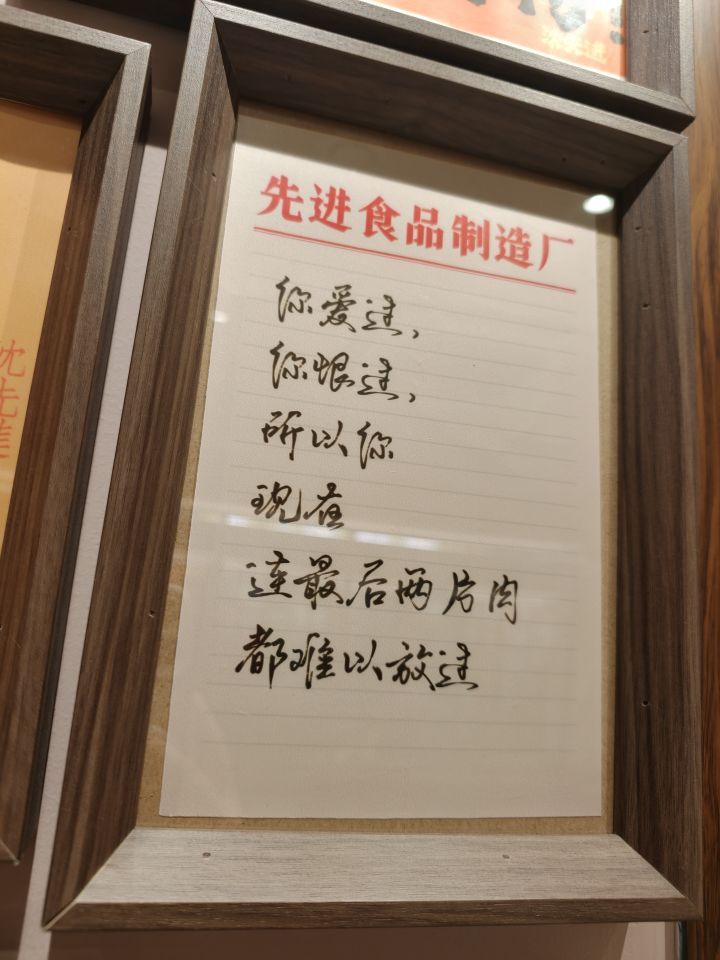 先进食品制造厂
你爱过,
你恨过,
所以你
现在
连最后两片肉
都难以放过
沈先美